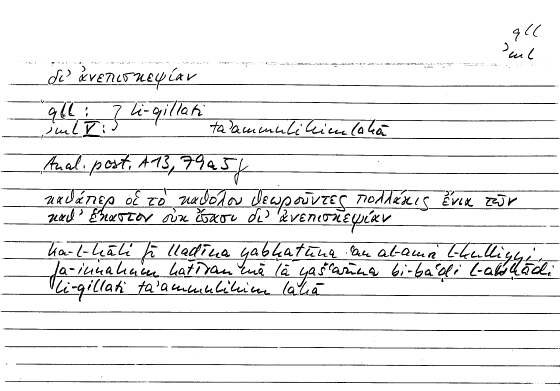 qll
ʾml
δι' ἀνεπισκεψίαν
qll : } li-qillati
ʾml V : } taʾammulihim lahā
Anal. post. A 13, 79a5f
καθάπερ οἱ τὸ καθόλου θεωροῦντες πολλάκις ἔνια τῶν
καθ' ἕκαστον οὐκ ἴσασι δι' ἀνεπισκεψίαν
ka-l-ḥāli fī llaḏīna yabḥaṯūna ʿan al-amri l-kulliyyi,
fa-innahum kaṯīran mā lā yašʿurūna bi-baʿḍi l-ašḫāṣi
li-qillati taʾammulihim lahā